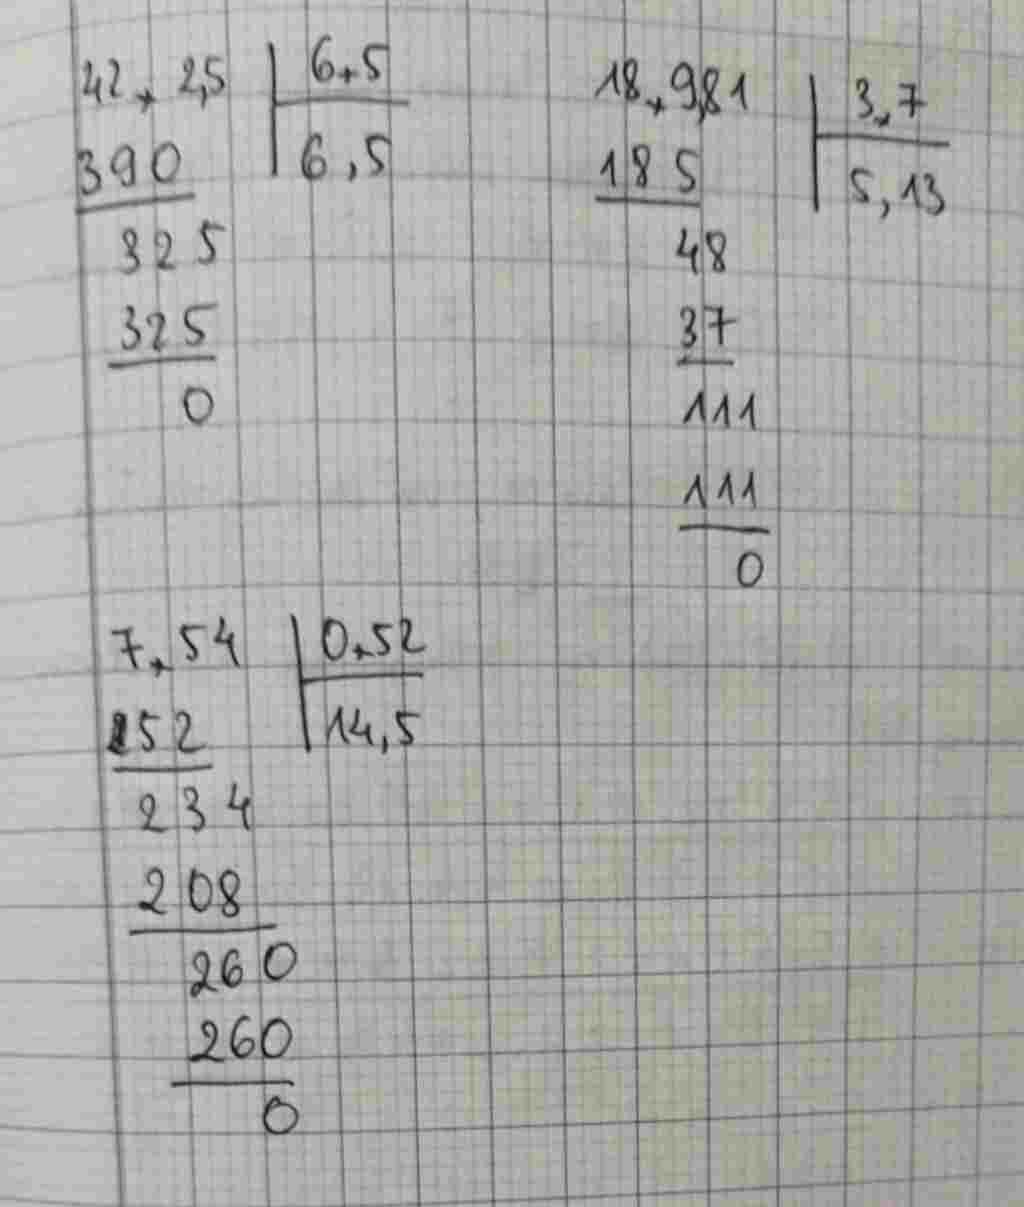 42,2,5 | 6,5
390 | 6,5
325
325
0
18,9,81 | 3,7
185 | 5,13
48
37
111
111
0
7,54 | 0,52
52 | 14,5
234
208
260
260
0